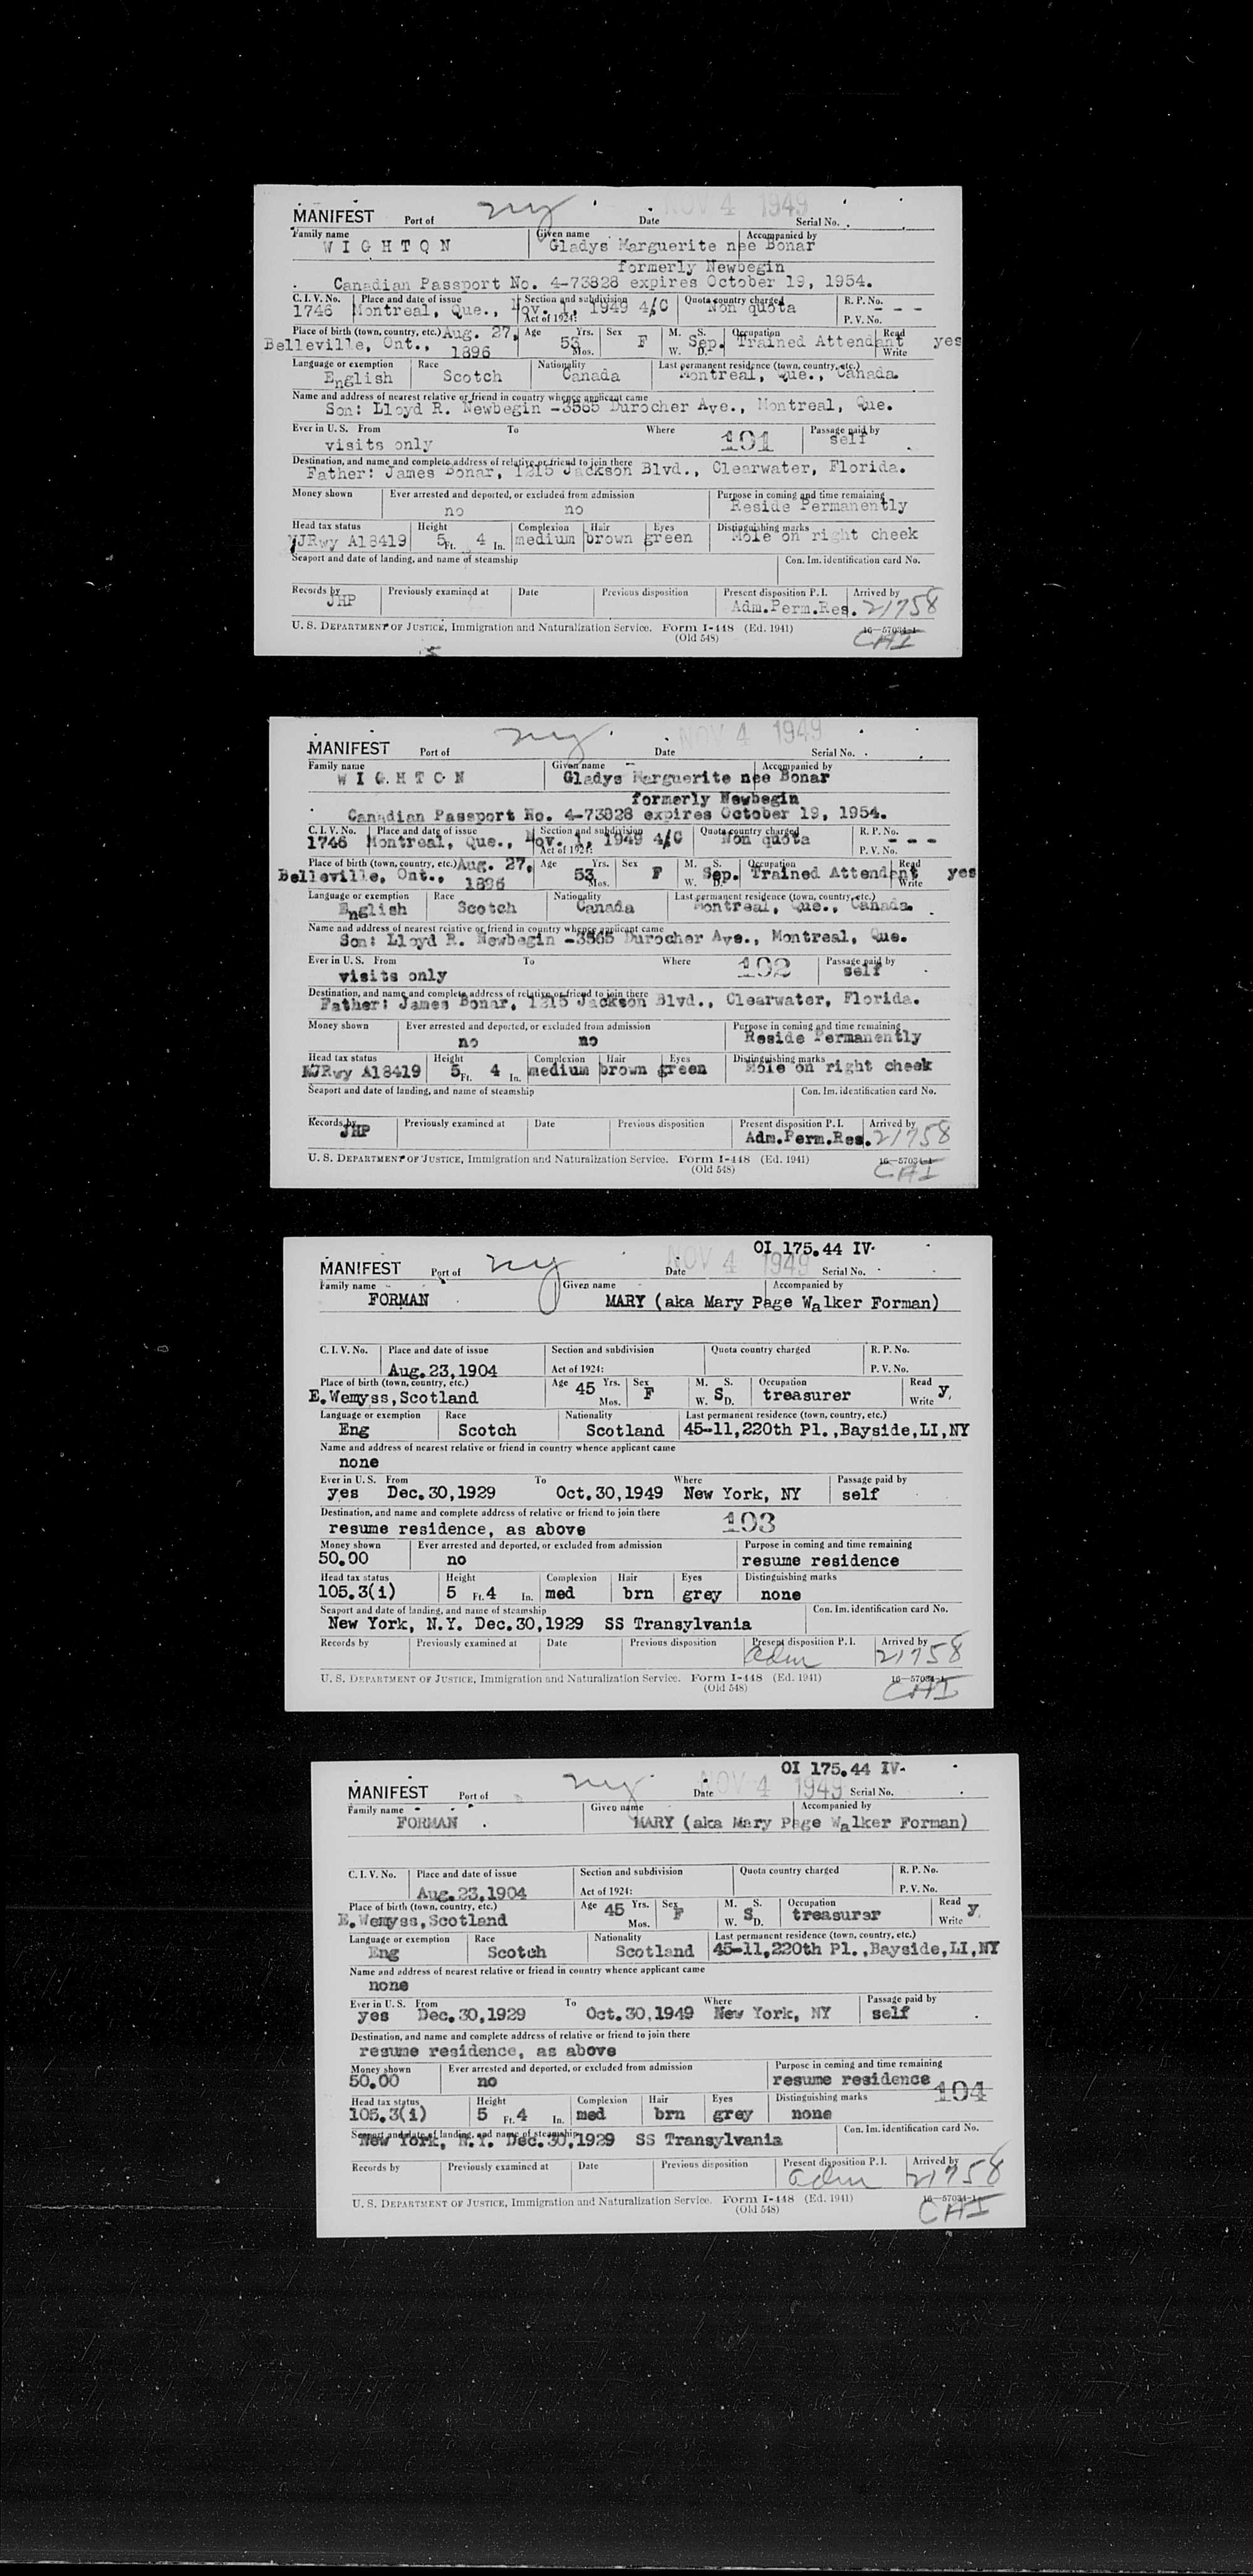 NOV 4 1949
MANIFEST Port of ny Date Serial No.
Family name Given name Accompanied by
WIGHTON Gladys Marguerite nee Bonar
formerly Newbegin
Canadian Passport No. 4-73828 expires October 19, 1954.
C. I. V. No. Place and date of issue Section and subdivision Quota country charged R. P. No.
1746 Montreal, Que., Nov. 1, 1949 4/C Non quota - - -
Act of 1924: P. V. No.
Place of birth (town, country, etc.) Aug. 27, Age Yrs. Sex M. S. Occupation Read
Belleville, Ont., 1896 53 F Sep. Trained Attendant yes
Mos. W. D. Write
Language or exemption Race Nationality Last permanent residence (town, country, etc.)
English Scotch Canada Montreal, Que., Canada.
Name and address of nearest relative or friend in country whence applicant came
Son: Lloyd R. Newbegin -3565 Durocher Ave., Montreal, Que.
Ever in U. S. From To Where 101 Passage paid by
visits only self
Destination, and name and complete address of relative or friend to join there
Father: James Bonar, 1215 Jackson Blvd., Clearwater, Florida.
Money shown Ever arrested and deported, or excluded from admission Purpose in coming and time remaining
no no Reside Permanently
Head tax status Height Complexion Hair Eyes Distinguishing marks
NJRwy A18419 5 Ft. 4 In. medium brown green Mole on right cheek
Seaport and date of landing, and name of steamship Con. Im. identification card No.
Records by Previously examined at Date Previous disposition Present disposition P. I. Arrived by
JHP Adm.Perm.Res. 21758
U. S. DEPARTMENT OF JUSTICE, Immigration and Naturalization Service. Form I-448 (Ed. 1941) 16—57034-1
(Old 548) CAI
NOV 4 1949
MANIFEST Port of ny Date Serial No.
Family name Given name Accompanied by
WIGHTON Gladys Marguerite nee Bonar
formerly Newbegin
Canadian Passport No. 4-73828 expires October 19, 1954.
C. I. V. No. Place and date of issue Section and subdivision Quota country charged R. P. No.
1746 Montreal, Que., Nov. 1, 1949 4/C Non quota - - -
Act of 1924: P. V. No.
Place of birth (town, country, etc.) Aug. 27, Age Yrs. Sex M. S. Occupation Read
Belleville, Ont., 1896 53 F Sep. Trained Attendant yes
Mos. W. D. Write
Language or exemption Race Nationality Last permanent residence (town, country, etc.)
English Scotch Canada Montreal, Que., Canada.
Name and address of nearest relative or friend in country whence applicant came
Son: Lloyd R. Newbegin -3565 Durocher Ave., Montreal, Que.
Ever in U. S. From To Where 102 Passage paid by
visits only self
Destination, and name and complete address of relative or friend to join there
Father: James Bonar, 1215 Jackson Blvd., Clearwater, Florida.
Money shown Ever arrested and deported, or excluded from admission Purpose in coming and time remaining
no no Reside Permanently
Head tax status Height Complexion Hair Eyes Distinguishing marks
NJRwy A18419 5 Ft. 4 In. medium brown green Mole on right cheek
Seaport and date of landing, and name of steamship Con. Im. identification card No.
Records by Previously examined at Date Previous disposition Present disposition P. I. Arrived by
JHP Adm.Perm.Res. 21758
U. S. DEPARTMENT OF JUSTICE, Immigration and Naturalization Service. Form I-448 (Ed. 1941) 16—57034-1
(Old 548) CAI
OI 175.44 IV.
NOV 4 1949
MANIFEST Port of ny Date Serial No.
Family name Given name Accompanied by
FORMAN MARY (aka Mary Page Walker Forman)
C. I. V. No. Place and date of issue Section and subdivision Quota country charged R. P. No.
Aug.23,1904 Act of 1924: P. V. No.
Place of birth (town, country, etc.) Age 45 Yrs. Sex M. S. Occupation Read
E.Wemyss,Scotland Mos. F W. S D. treasurer Write y.
Language or exemption Race Nationality Last permanent residence (town, country, etc.)
Eng Scotch Scotland 45-11,220th Pl.,Bayside,LI,NY
Name and address of nearest relative or friend in country whence applicant came
none
Ever in U. S. From To Where Passage paid by
yes Dec.30,1929 Oct.30,1949 New York, NY self
Destination, and name and complete address of relative or friend to join there
resume residence, as above 103
Money shown Ever arrested and deported, or excluded from admission Purpose in coming and time remaining
50.00 no resume residence
Head tax status Height Complexion Hair Eyes Distinguishing marks
105.3(i) 5 Ft. 4 In. med brn grey none
Seaport and date of landing, and name of steamship Con. Im. identification card No.
New York, N.Y. Dec.30,1929 SS Transylvania
Records by Previously examined at Date Previous disposition Present disposition P. I. Arrived by
adm 21758
U. S. DEPARTMENT OF JUSTICE, Immigration and Naturalization Service. Form I-448 (Ed. 1941) 16—57034-1
(Old 548) CAI
OI 175.44 IV.
NOV 4 1949
MANIFEST Port of ny Date Serial No.
Family name Given name Accompanied by
FORMAN MARY (aka Mary Page Walker Forman)
C. I. V. No. Place and date of issue Section and subdivision Quota country charged R. P. No.
Aug.23,1904 Act of 1924: P. V. No.
Place of birth (town, country, etc.) Age 45 Yrs. Sex M. S. Occupation Read
E.Wemyss,Scotland Mos. F W. S D. treasurer Write y.
Language or exemption Race Nationality Last permanent residence (town, country, etc.)
Eng Scotch Scotland 45-11,220th Pl.,Bayside,LI,NY
Name and address of nearest relative or friend in country whence applicant came
none
Ever in U. S. From To Where Passage paid by
yes Dec.30,1929 Oct.30,1949 New York, NY self
Destination, and name and complete address of relative or friend to join there
resume residence, as above
Money shown Ever arrested and deported, or excluded from admission Purpose in coming and time remaining
50.00 no resume residence 104
Head tax status Height Complexion Hair Eyes Distinguishing marks
105.3(i) 5 Ft. 4 In. med brn grey none
Seaport and date of landing, and name of steamship Con. Im. identification card No.
New York, N.Y. Dec.30,1929 SS Transylvania
Records by Previously examined at Date Previous disposition Present disposition P. I. Arrived by
adm 21758
U. S. DEPARTMENT OF JUSTICE, Immigration and Naturalization Service. Form I-448 (Ed. 1941) 16—57034-1
(Old 548) CAI